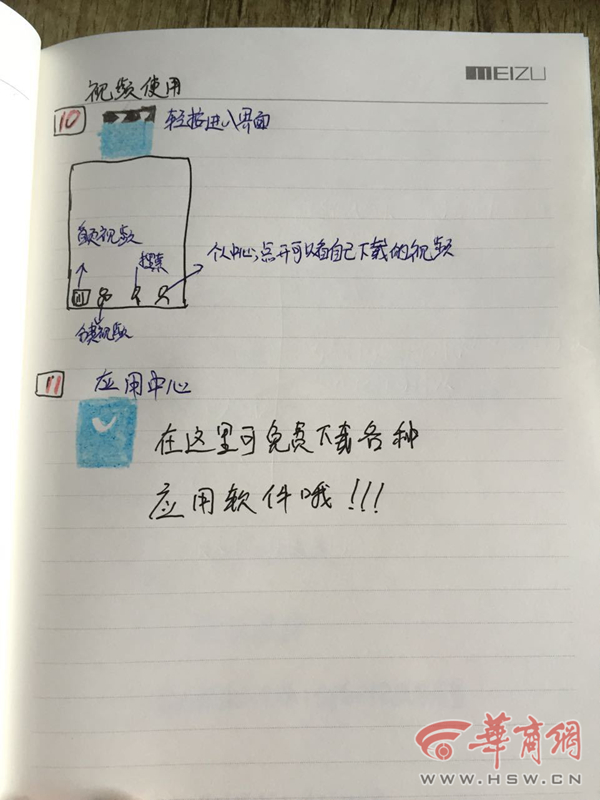 MEIZU
视频使用
10
轻按进入界面
首页视频
搜索
个人中心,点开可以看自己下载的视频
分类视频
11
应用中心
在这里可免费下载各种
应用软件哦!!!
華商網
WWW.HSW.CN